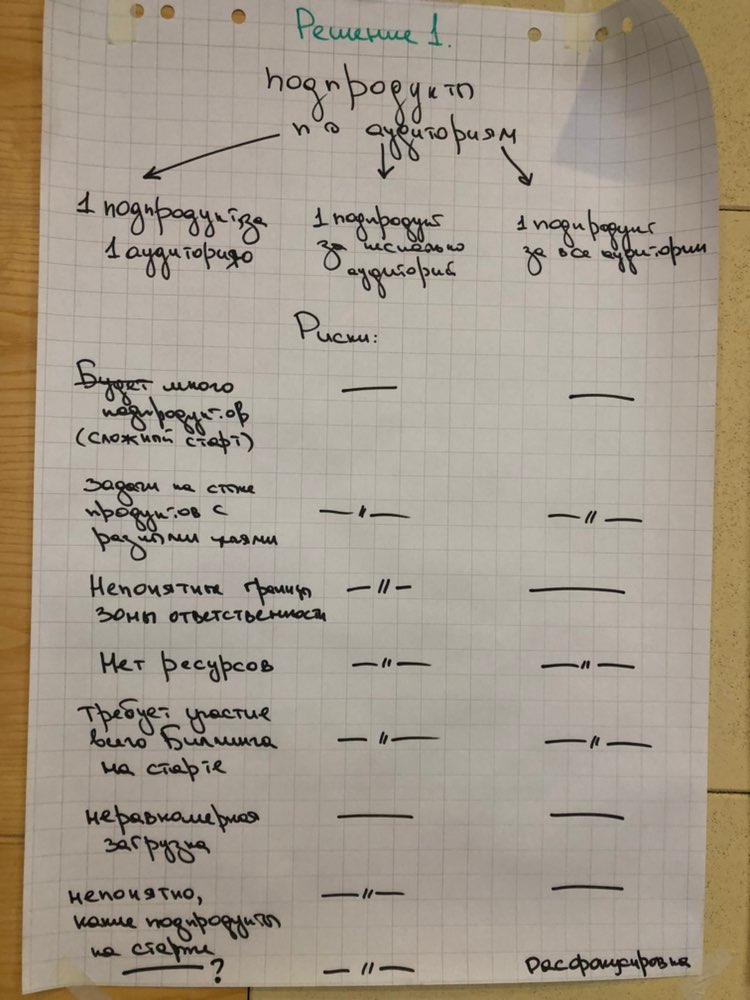 Решение 1.
подпродукты
по аудориториям
1 подпродукт за
1 аудиторию
1 подпродукт
за несколько
аудиторий
1 подпродукт
за все аудитории
Риски:
Будет много
подпродуктов
(сложный старт)
—
—
Задачи на стыке
продуктов с
разными целями
— " —
— " —
Непонятные границы
зоны ответственности
— " —
—
Нет ресурсов
— " —
— " —
Требует участие
всего Биллинга
на старте
— " —
— " —
неравномерная
загрузка
—
—
непонятно,
какие подпродукты
на старте
— " —
—
— ?
— " —
Расфокусировка